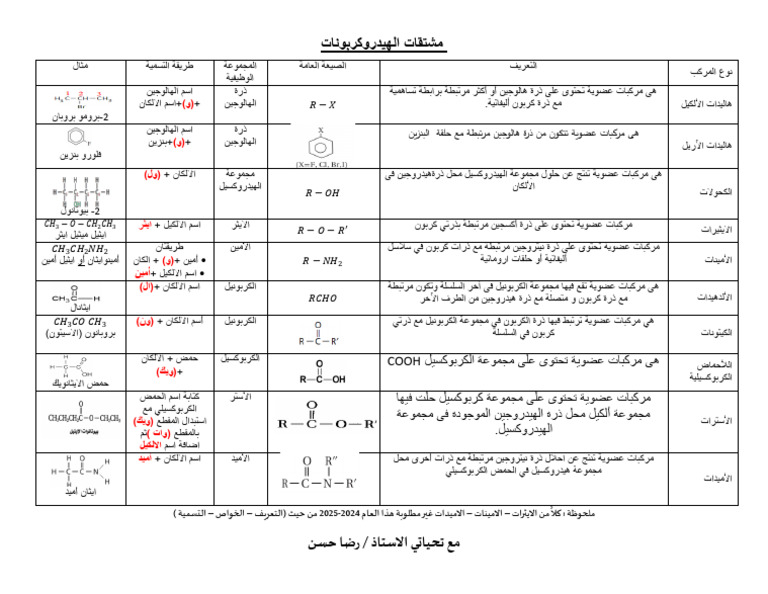 مشتقات الهيدروكربونات
نوع المركب	التعريف	الصيغة العامة	المجموعة الوظيفية	طريقة التسمية	مثال
هاليدات الألكيل	هى مركبات عضوية تحتوى على ذرة هالوجين أو أكثر مرتبطة برابطة تساهمية مع ذرة كربون أليفاتية.	R − X	ذرة الهالوجين	اسم الهالوجين +(و)+اسم الألكان	H₃C−CH−CH₃ 1 2 3 Br 2-برومو بروبان
هاليدات الأريل	هى مركبات عضوية تتكون من ذرة هالوجين مرتبطة مع حلقة البنزين	X (X=F, Cl, Br,I)	ذرة الهالوجين	اسم الهالوجين +(و)+بنزين	F فلورو بنزين
الكحولات	هى مركبات عضوية تنتج عن حلول مجموعة الهيدروكسيل محل ذرةهيدروجين فى الألكان	R − OH	مجموعة الهيدروكسيل	الألكان + (ول)	2- بيوتانول
الايثيرات	مركبات عضوية تحتوى على ذرة أكسجين مرتبطة بذرتي كربون	R − O − R′	الايثر	اسم الالكيل + ايثر	CH₃ − O − CH₂CH₃ ايثيل ميثيل ايثر
الأمينات	مركبات عضوية تحتوى على ذرة نيتروجين مرتبطة مع ذرات كربون في سلاسل أليفاتية أو حلقات اروماتية	R − NH₂	الأمين	طريقتان • أمين +(و) + الكان • اسم الالكيل +أمين	CH₃CH₂NH₂ أمينوايثان أو ايثيل أمين
الألدهيدات	هى مركبات عضوية تقع فيها مجموعة الكربونيل فى أخر السلسلة وتكون مرتبطة مع ذرة كربون و متصلة مع ذرة هيدروجين من الطرف الأخر	RCHO	الكربونيل	اسم الالكان +(ال)	CH₃ C H O ايثانال
الكيتونات	هي مركبات عضوية ترتبط فيها ذرة الكربون في مجموعة الكربونيل مع ذرتي كربون في السلسلة	O R−C−R′	الكربونيل	أسم الالكان + (ون)	CH₃CO CH₃ بروبانون (الأسيتون)
اللأحماض الكربوكسيلية	هى مركبات عضوية تحتوى على مجموعة الكربوكسيل COOH	O R−C−OH	الكربوكسيل	حمض + الألكان +(ويك)	حمض الايثانويك
الأسترات	مركبات عضوية تحتوى على مجموعة كربوكسيل حلت فيها مجموعة ألكيل محل ذرة الهيدروجين الموجوده فى مجموعة الهيدروكسيل.	O R − C − O − R′	الأستر	كتابة اسم الحمض الكربوكسيلي مع استبدال المقطع (ويك) بالمقطع (وات )ثم اضافة اسم الألكيل	O CH₃CH₂CH₂C−O−CH₂CH₃
الأميدات	مركبات عضوية تنتج عن احلال ذرة نيتروجين مرتبطة مع ذرات أخرى محل مجموعة هيدروكسيل في الحمض الكربوكسيلي	O R″ R−C−N−R′	الأميد	اسم الالكان + اميد	ايثان أميد
ملحوظة : كلاً من الايثرات – الامينات – الاميدات غير مطلوبة هذا العام 2024-2025 من حيث (التعريف – الخواص – التسمية )
مع تحياتي الاستاذ / رضا حسن